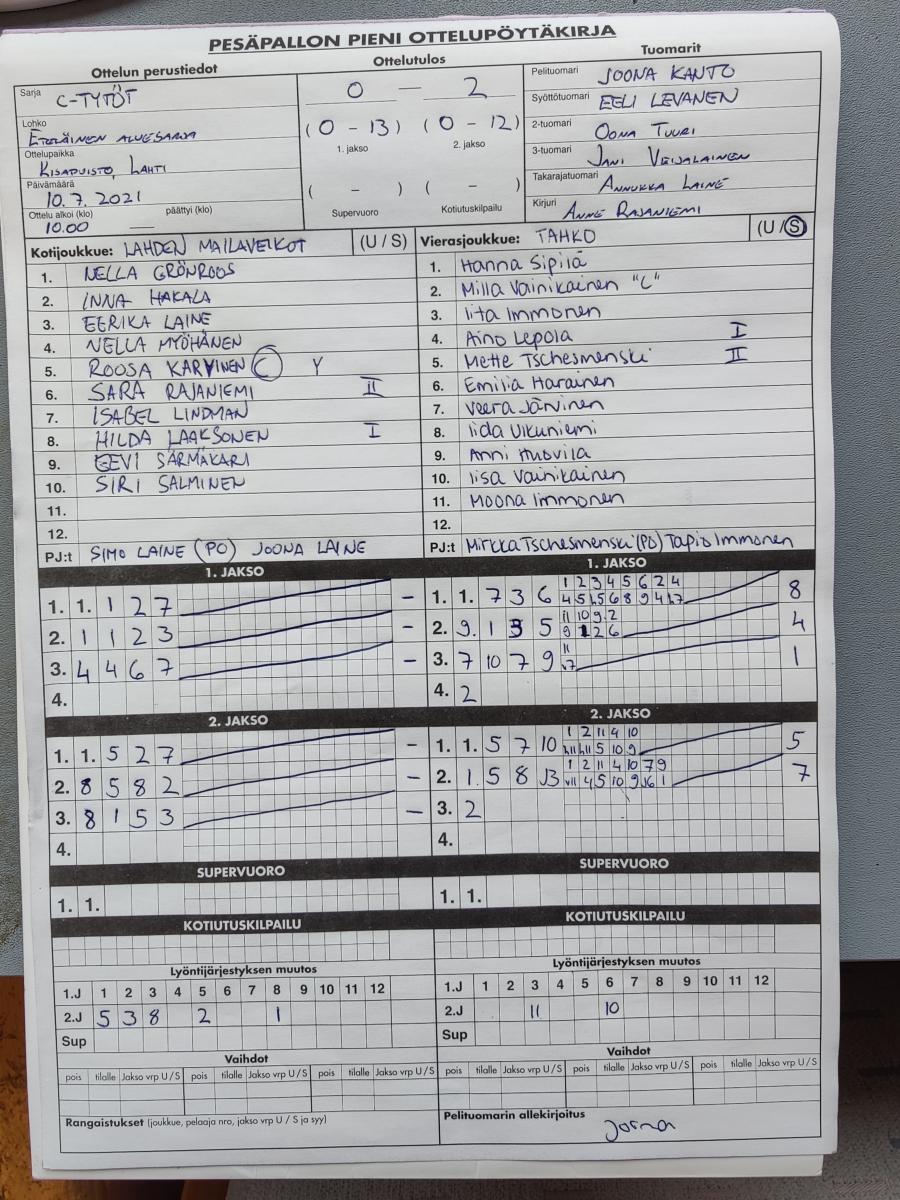 PESÄPALLON PIENI OTTELUPÖYTÄKIRJA
Ottelun perustiedot
Sarja C-TYTÖT
Lohko ETELÄINEN ALUESARJA
Ottelupaikka KISAPUISTO, LAHTI
Päivämäärä 10.7.2021
Ottelu alkoi (klo) 10.00 päättyi (klo) —
Ottelutulos
0 — 2
(0 - 13) (0 - 12)
1. jakso 2. jakso
( - ) ( - )
Supervuoro Kotiutuskilpailu
Tuomarit
Pelituomari JOONA KANTO
Syöttötuomari EELI LEVANEN
2-tuomari OONA TUURI
3-tuomari JANI VEIJALAINEN
Takarajatuomari ANNUKKA LAINE
Kirjuri ANNE RAJANIEMI
Kotijoukkue: LAHDEN MAILAVEIKOT (U / S)
1. NELLA GRÖNROOS
2. INNA HAKALA
3. EERIKA LAINE
4. NELLA MYÖHÄNEN
5. ROOSA KARVINEN C Y
6. SARA RAJANIEMI II
7. ISABEL LINDMAN
8. HILDA LAAKSONEN I
9. EEVI SÄRMÄKARI
10. SIRI SALMINEN
11.
12.
PJ:t SIMO LAINE (PO) JOONA LAINE
Vierasjoukkue: TAHKO (U / S)
1. Hanna Sipilä
2. Milla Vainikainen "C"
3. Iita Immonen
4. Aino Lepola I
5. Mette Tschesmenski II
6. Emilia Harainen
7. Veera Järvinen
8. Iida Uikuniemi
9. Anni Huovila
10. Iisa Vainikainen
11. Moona Immonen
12.
PJ:t Mirkka Tschesmenski (PO) Tapio Immonen
1. JAKSO
1. 1. 1 2 7 –
2. 1 1 2 3 –
3. 4 4 6 7 –
4.
1. JAKSO
1 2 3 4 5 6 2 4
1. 1. 7 3 6 8
11 10 9 2
2. 9. 1 3 5 4
11
3. 7 10 7 9 1
4. 2
2. JAKSO
1. 1. 5 2 7 –
2. 8 5 8 2 –
3. 8 1 5 3 –
4.
2. JAKSO
1 2 11 4 10
1. 1. 5 7 10 5
1 2 11 4 10 7 9
2. 1. 5 8 7
3. 2
4.
SUPERVUORO
1. 1.
SUPERVUORO
1. 1.
KOTIUTUSKILPAILU
KOTIUTUSKILPAILU
Lyöntijärjestyksen muutos
1.J 1 2 3 4 5 6 7 8 9 10 11 12
2.J 5 3 8 2 1
Sup
Lyöntijärjestyksen muutos
1.J 1 2 3 4 5 6 7 8 9 10 11 12
2.J 11 10
Sup
Vaihdot
pois tilalle Jakso vrp U / S pois tilalle Jakso vrp U / S pois tilalle Jakso vrp U / S
Vaihdot
pois tilalle Jakso vrp U / S pois tilalle Jakso vrp U / S pois tilalle Jakso vrp U / S
Rangaistukset (joukkue, pelaaja nro, jakso vrp U / S ja syy)
Pelituomarin allekirjoitus